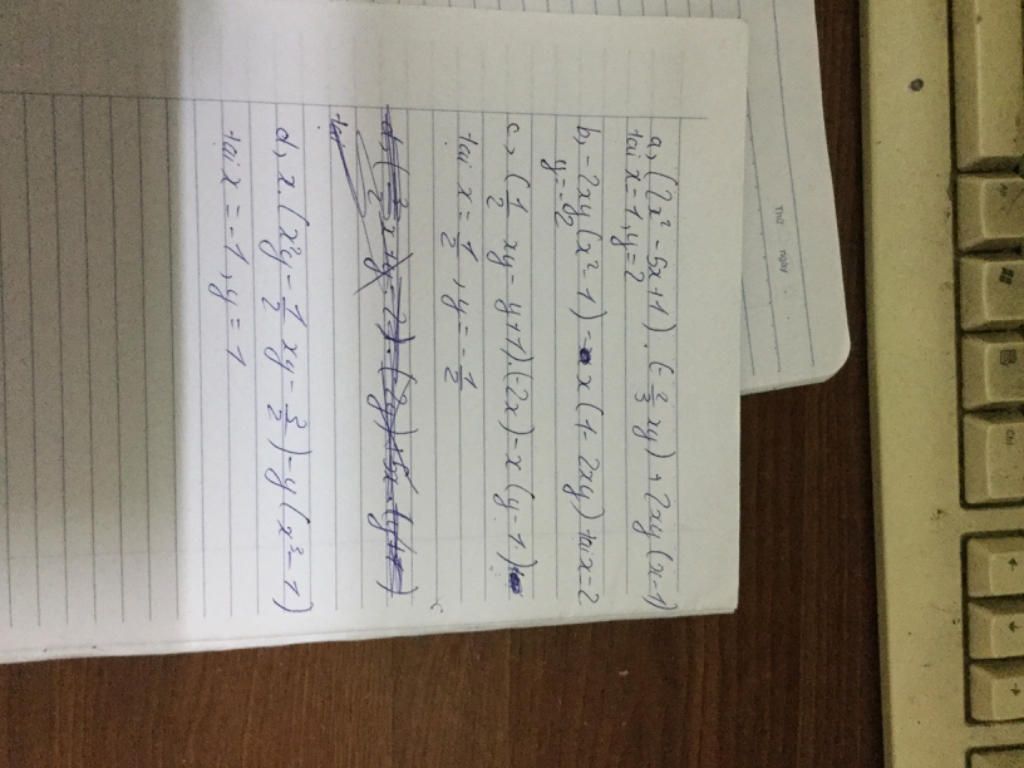 a, (2x² - 5x + 1) . (-2/3 xy) + 2xy (x-1)
tại x = 1, y = 2
b, - 2xy (x² - 1) - x (1 - 2xy) tại x = 2
c, (1/2 xy - y + 1) (-2x) - x (y - 1)
tại x = 1/2 , y = - 1/2
tại
d, x . (x²y - 1/2 xy - 3/2) - y (x³ - 1)
tại x = -1 , y = 1
THỨ NGÀY